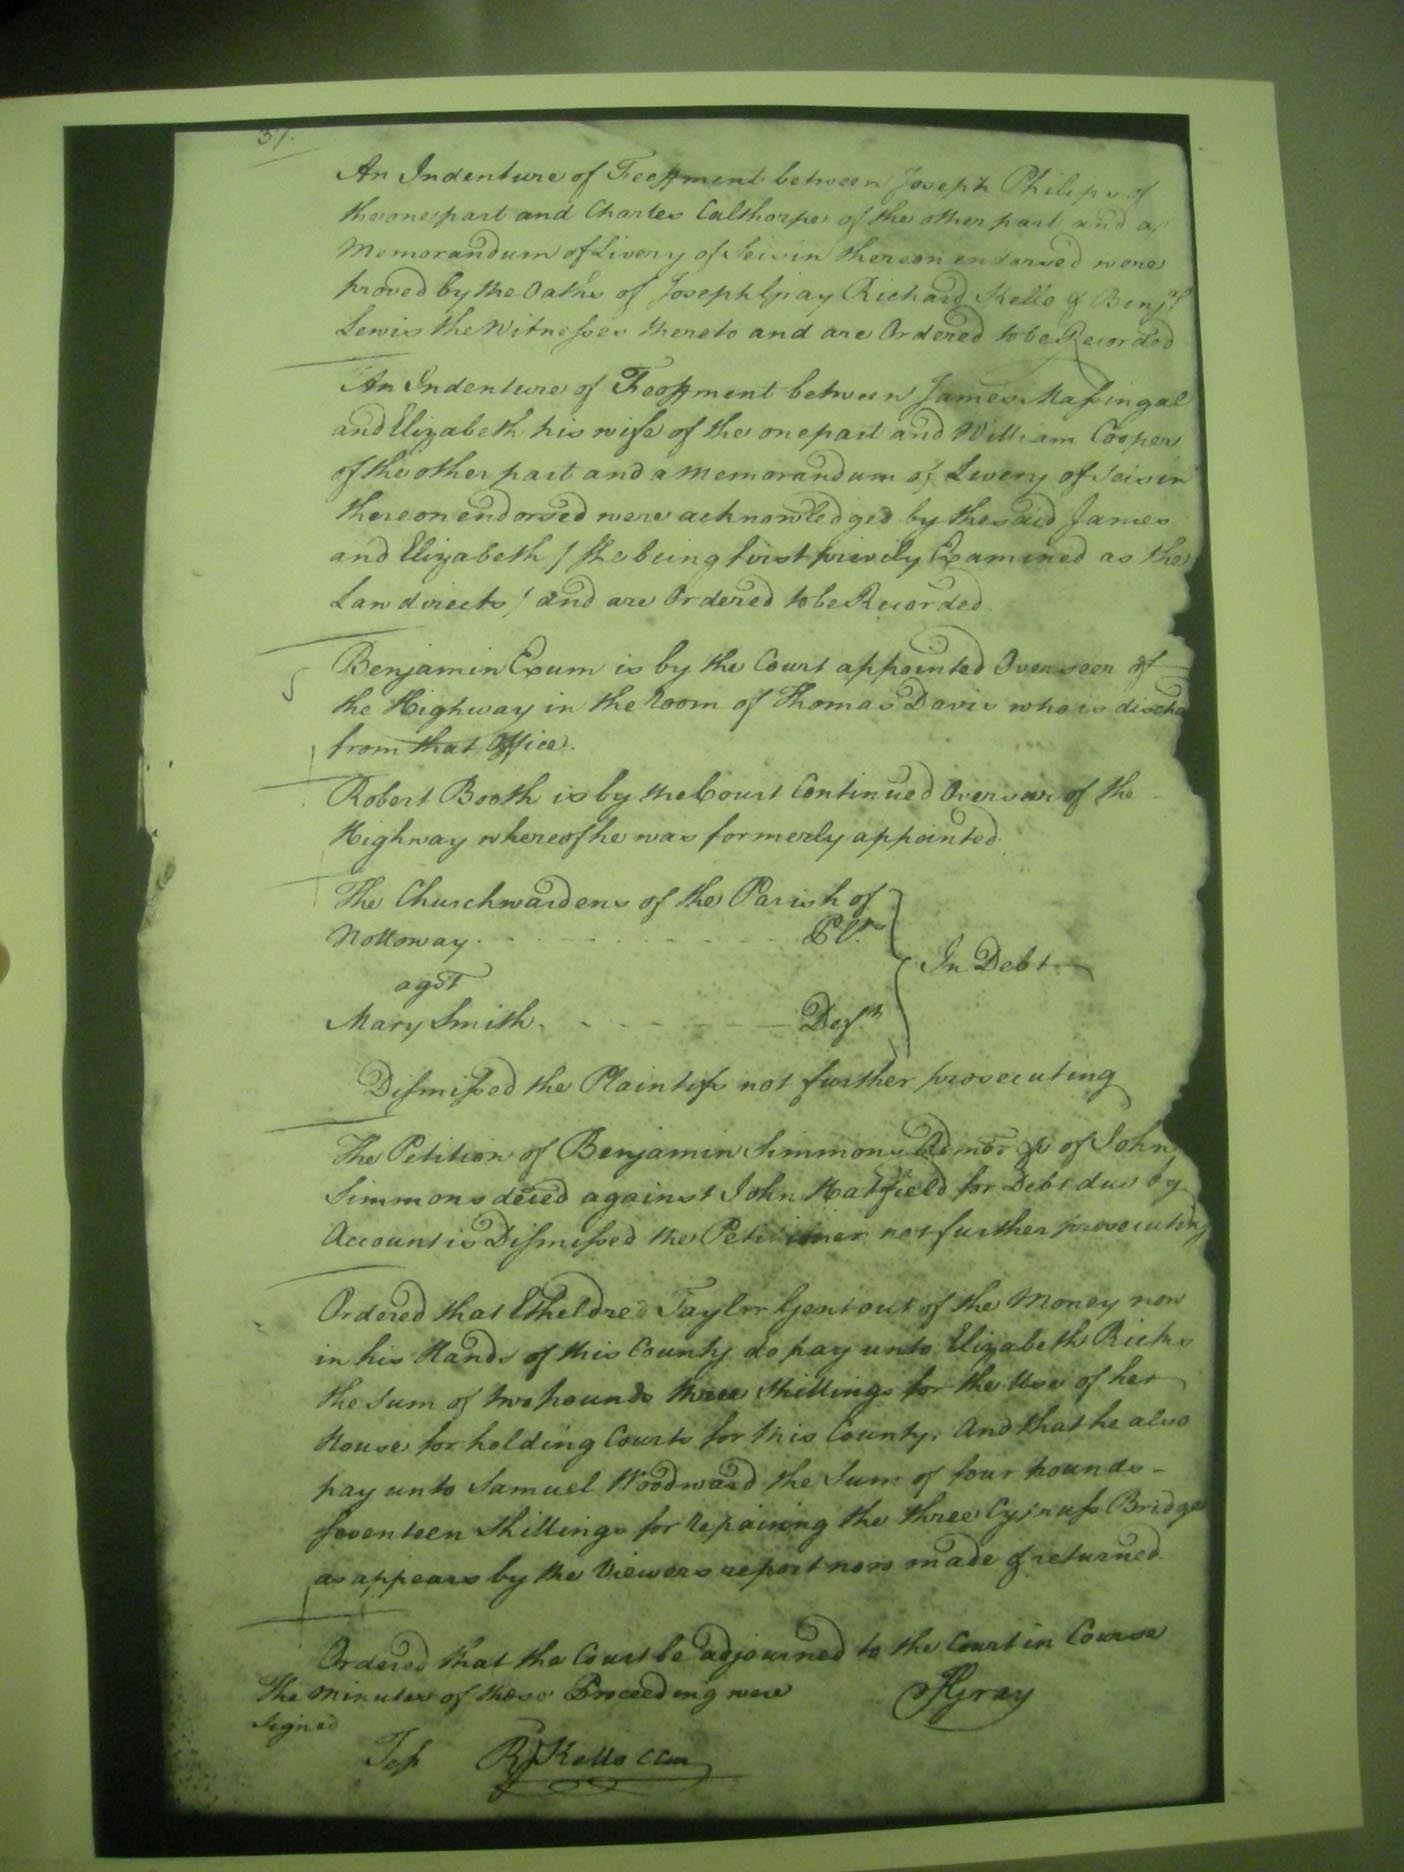 37.
An Indenture of Feoffment between Joseph Philips of
the one part and Charles Calthorpe of the other part and a
Memorandum of Livery of Seisin thereon endorsed were
proved by the Oaths of Joseph Gray Richard Kello & Benja
Lewis the Witnesses thereto and are Ordered to be Recorded
An Indenture of Feoffment between James Massingal
and Elizabeth his wife of the one part and William Cooper
of the other part and a Memorandum of Livery of Seisin
thereon endorsed were acknowledged by the said James
and Elizabeth / she being first privily Examined as the
Law directs / and are Ordered to be Recorded.
Benjamin Exum is by the Court appointed Overseer of
the Highway in the Room of Thomas Davis who is discha
from that Office.
Robert Booth is by the Court Continued Overseer of the
Highway whereof he was formerly appointed.
The Churchwardens of the Parish of
Nottoway. Plts
In Debt
agst
Mary Smith. Deft
Dismissed the Plaintifs not further prosecuting
The Petition of Benjamin Simmons Admor &c of John
Simmons deced against John Hatfield for Debt due by
Account is Dismissed the Petitioner not further prosecuting
Ordered that Etheldred Taylor Gent out of the Money now
in his Hands of this County do pay unto Elizabeth Ricks
the Sum of two pounds three Shillings for the Use of her
House for holding Courts for this County. And that he also
pay unto Samuel Woodward the Sum of four pounds
Seventeen Shillings for Repairing the three Cyprass Bridge
as appears by the Viewers report now made & returned.
Ordered that the Court be adjourned to the Court in Course
The Minutes of these Proceeding were JGray
Signed
Test RKello CCur